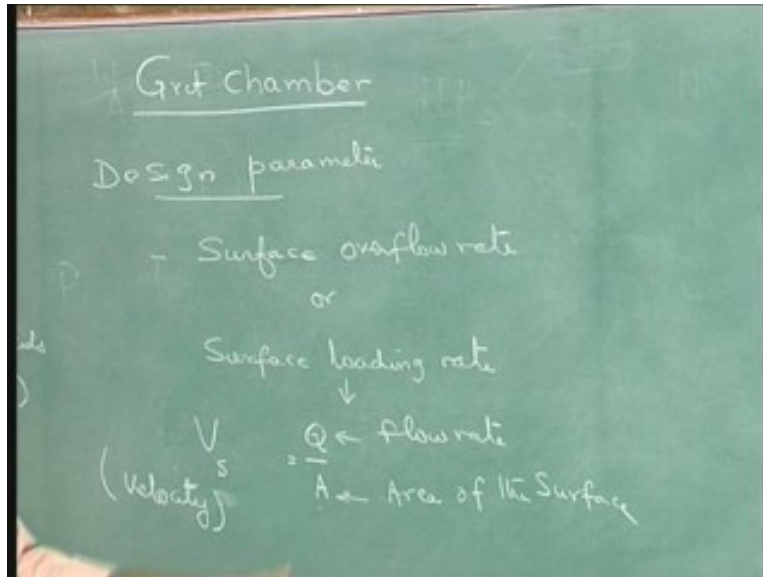 Grit Chamber
Design parameter
- Surface overflow rate
or
Surface loading rate
↓
V_s = Q ← flow rate
(Velocity) A ← Area of the Surface